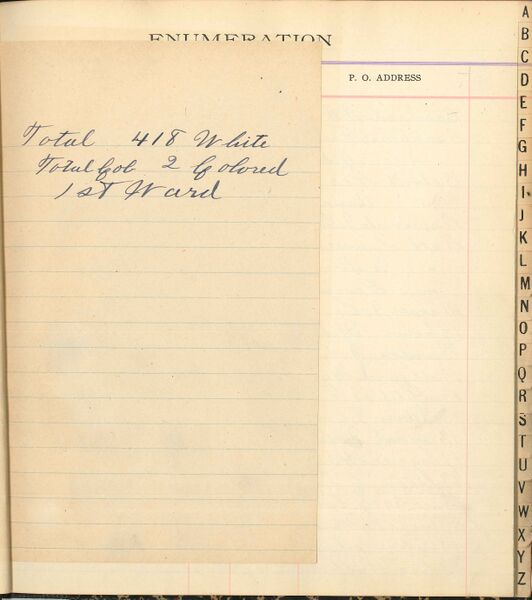 ENUMERATION
P. O. ADDRESS
Total 418 White
Total Col 2 Colored
1st Ward
A
B
C
D
E
F
G
H
I
J
K
L
M
N
O
P
Q
R
S
T
U
V
W
X
Y
Z